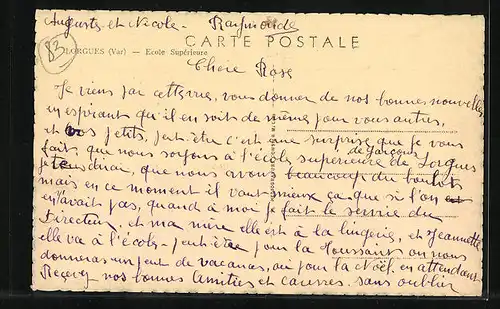 Auguste et Nicole - Raymonde
83
CARTE POSTALE
LORGUES (Var) — Ecole Supérieure
Chère Rose
Je viens par cette vue, vous donner de nos bonnes nouvelles
en espérant qu'il en soit de même pour vous autres,
et vos petits, peut être c'est une surprise que je vous
fait, que nous soyons à l'école supérieure de garçons de Lorgues
je vous dirai, que nous avons beaucoup du boulot
mais en ce moment il vaut mieux ça que si l'on
en avait pas, quand à moi je fait le service du
Directeur, et ma mère elle est à la lingerie, et Jeannette
elle va à l'école - peut être pour la Toussaint on nous
donnera un peut de vacances, où pour la Noël. en attendant
Recevez nos bonnes Amitiés et caresses. sans oublier